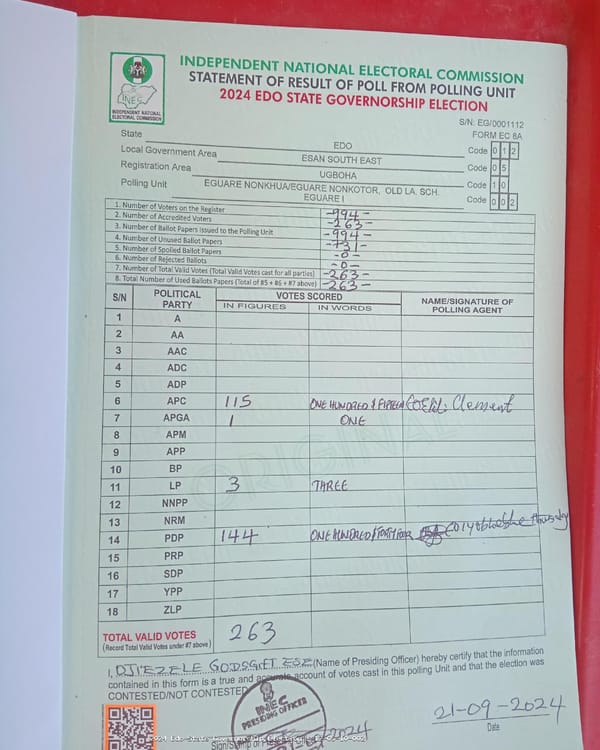 INDEPENDENT NATIONAL ELECTORAL COMMISSION
STATEMENT OF RESULT OF POLL FROM POLLING UNIT
2024 EDO STATE GOVERNORSHIP ELECTION
INEC
INDEPENDENT NATIONAL
ELECTORAL COMMISSION
S/N: EG/0001112
FORM EC 8A
State EDO Code 0 1 2
Local Government Area ESAN SOUTH EAST Code 0 5
Registration Area UGBOHA Code 1 0
Polling Unit EGUARE NONKHUA/EGUARE NONKOTOR, OLD LA. SCH. EGUARE I Code 0 0 2
1. Number of Voters on the Register -994-
2. Number of Accredited Voters -263-
3. Number of Ballot Papers Issued to the Polling Unit -994-
4. Number of Unused Ballot Papers -731-
5. Number of Spoiled Ballot Papers -0-
6. Number of Rejected Ballots -0-
7. Number of Total Valid Votes (Total Valid Votes cast for all parties) -263-
8. Total Number of Used Ballots Papers (Total of #5 + #6 + #7 above) -263-
S/N POLITICAL PARTY VOTES SCORED NAME/SIGNATURE OF POLLING AGENT
IN FIGURES IN WORDS
1 A
2 AA
3 AAC
4 ADC
5 ADP
6 APC 115 ONE HUNDRED & FIFTEEN Clement
7 APGA 1 ONE
8 APM
9 APP
10 BP
11 LP 3 THREE
12 NNPP
13 NRM
14 PDP 144 ONE HUNDRED/FORTY FOUR
15 PRP
16 SDP
17 YPP
18 ZLP
ORIGINAL
TOTAL VALID VOTES 263
(Record Total Valid Votes under #7 above)
I, GODSGIFT ESE (Name of Presiding Officer) hereby certify that the information
contained in this form is a true and accurate account of votes cast in this polling Unit and that the election was
CONTESTED/NOT CONTESTED
INEC
PRESIDING OFFICER
21-09-2024
Date